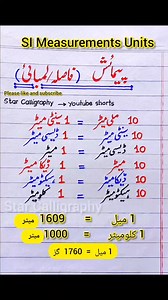 SI Measurements Units
پیمائش (فاصلہ/لمبائی)
Please like and subscribe
Star Calligraphy → youtube shorts
10 ملی میٹر = 1 سینٹی میٹر
10 سینٹی میٹر = 1 ڈیسی میٹر
10 ڈیسی میٹر = 1 میٹر
10 میٹر = 1 ڈیکا میٹر
10 ڈیکا میٹر = 1 ہیکٹو میٹر
10 ہیکٹو میٹر = 1 کلو میٹر
Star Calligraphy
1 میل = 1609 میٹر
1 کلومیٹر = 1000 میٹر
1 میل = 1760 گز